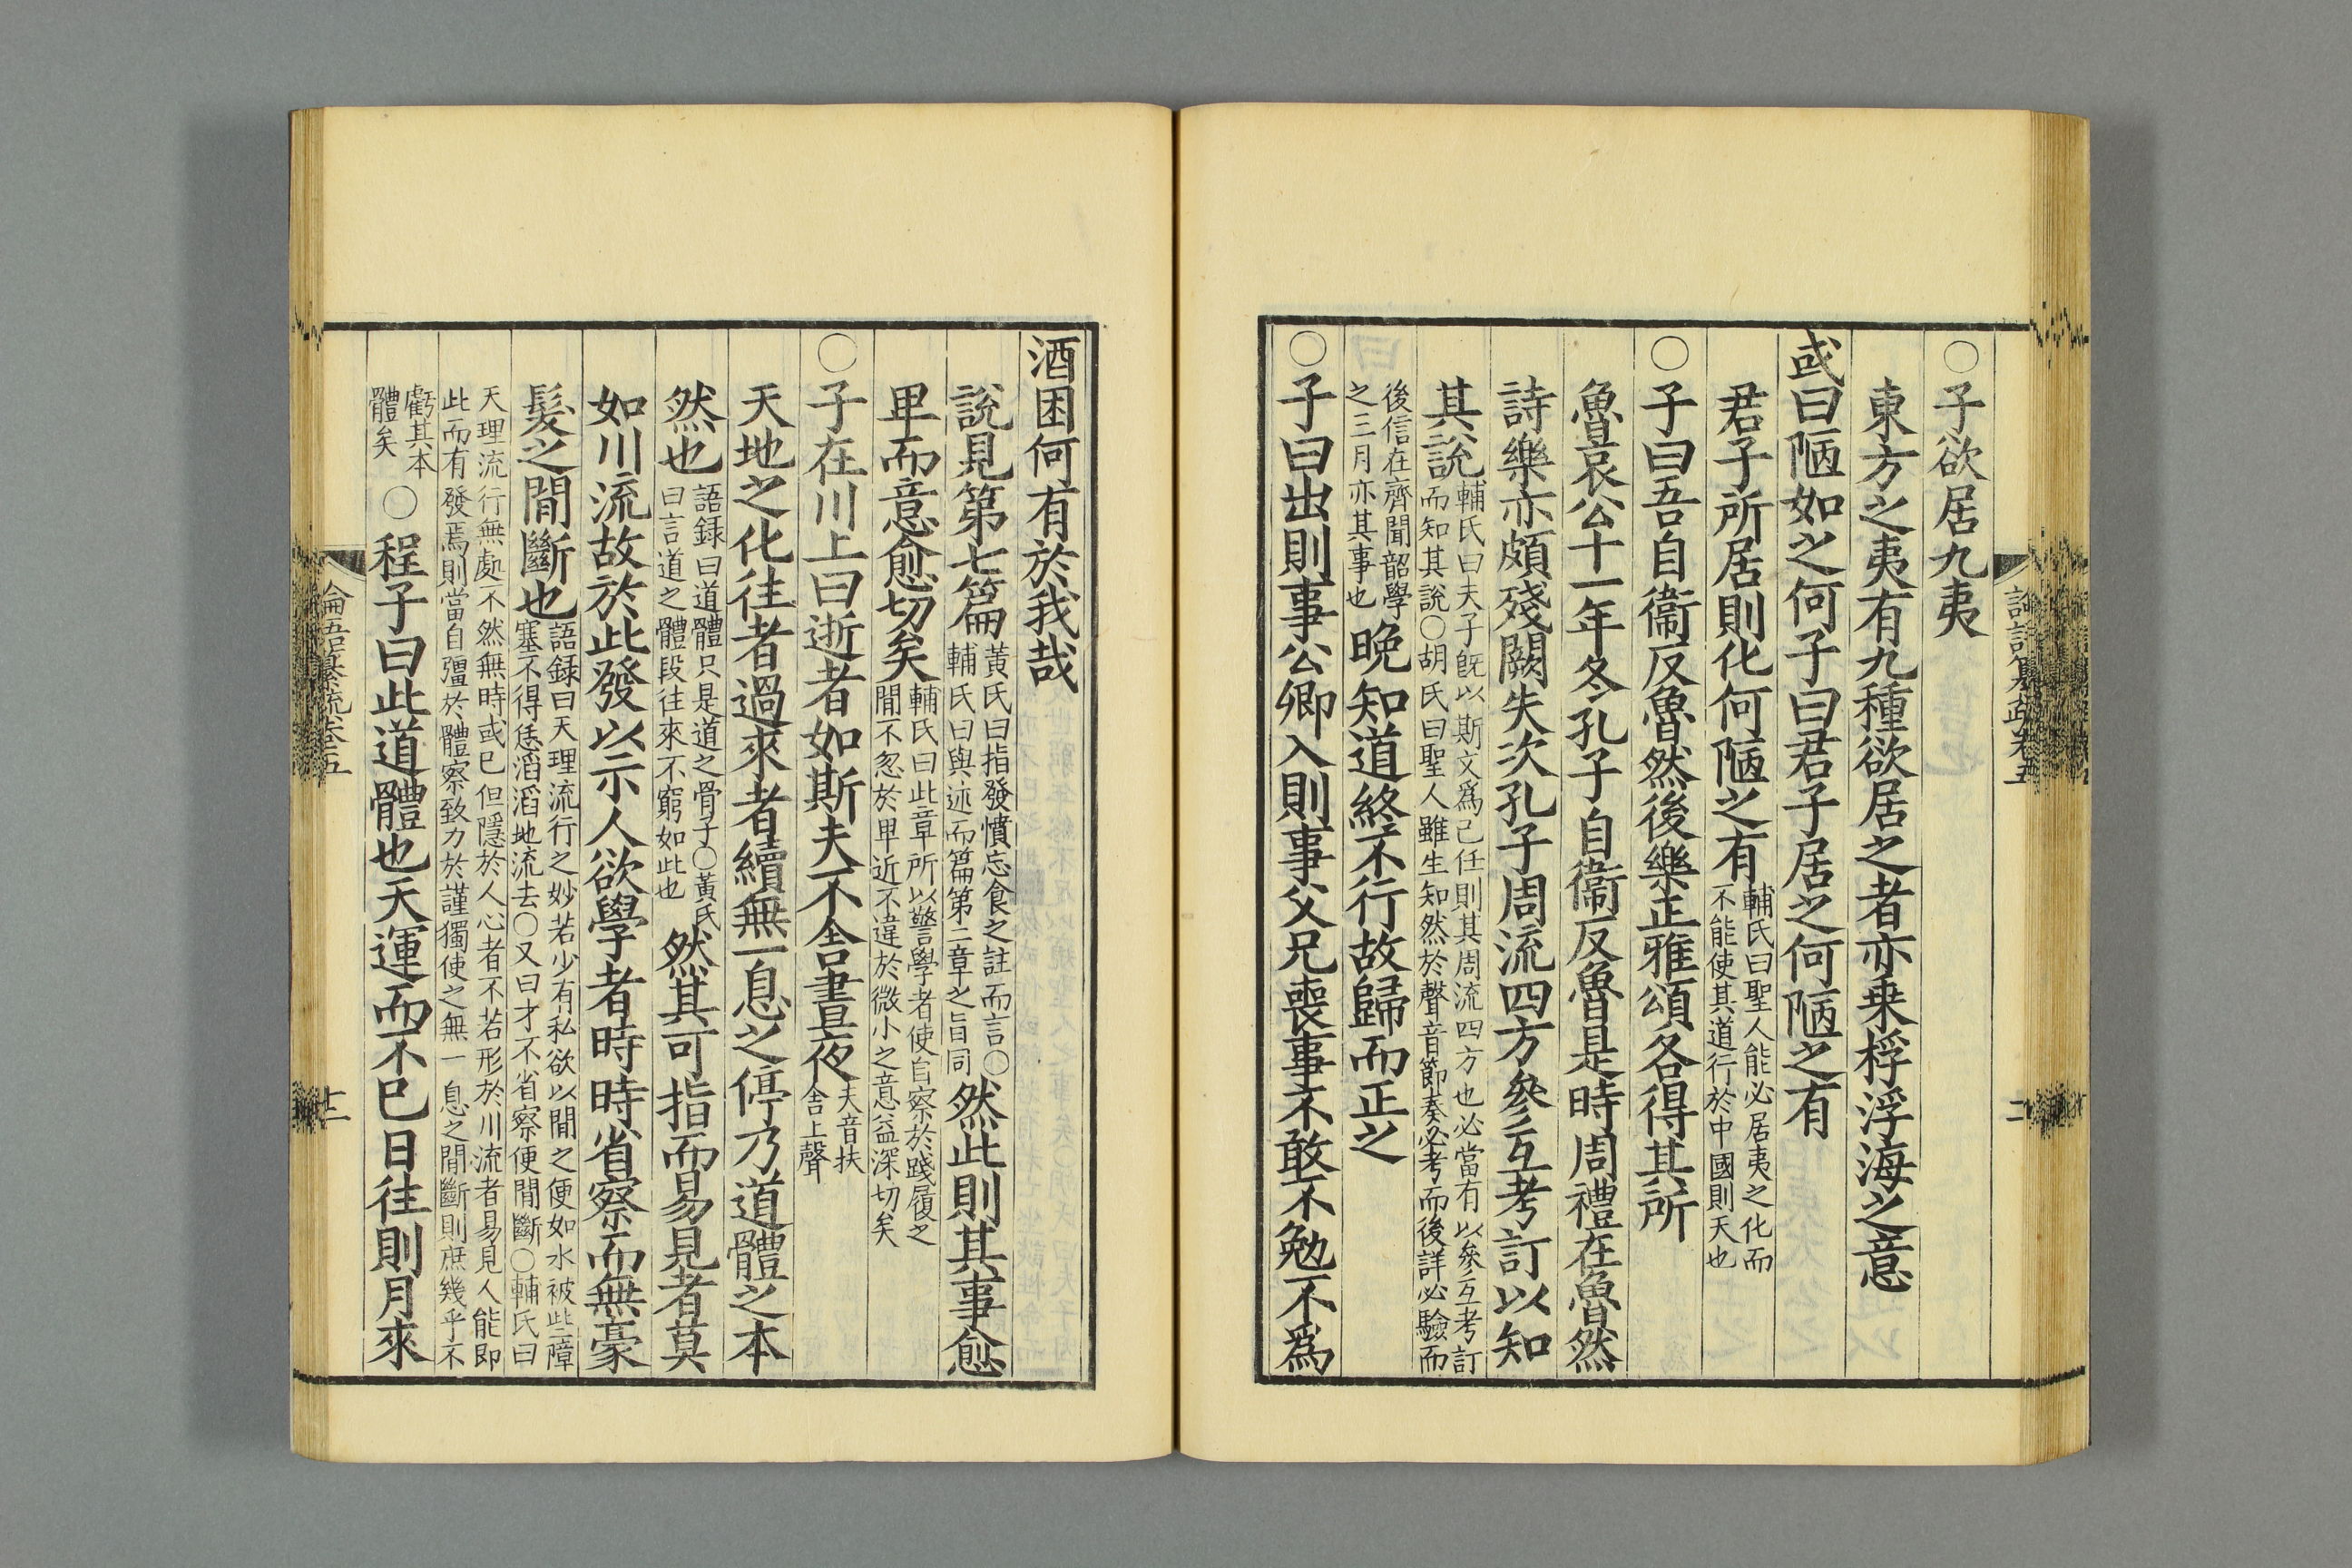 論語纂疏卷五
二
○子欲居九夷
東方之夷有九種欲居之者亦乗桴浮海之意
或曰陋如之何子曰君子居之何陋之有
君子所居則化何陋之有輔氏曰聖人能必居夷之化而
不能使其道行於中國則天也
○子曰吾自衞反魯然後樂正雅頌各得其所
魯哀公十一年冬孔子自衞反魯是時周禮在魯然
詩樂亦頗殘闕失次孔子周流四方參互考訂以知
其說輔氏曰夫子旣以斯文爲己任則其周流四方也必當有以參互考訂
而知其說○胡氏曰聖人雖生知然於聲音節奏必考而後詳必驗而
後信在齊聞韶學
之三月亦其事也
晚知道終不行故歸而正之
○子曰出則事公卿入則事父兄喪事不敢不勉不爲
酒困何有於我哉
說見第七篇黃氏曰指發憤忘食之註而言○
輔氏曰與述而篇第二章之旨同
然此則其事愈
卑而意愈切矣輔氏曰此章所以警學者使自察於踐履之
間不忽於卑近不違於微小之意益深切矣
○子在川上曰逝者如斯夫不舍晝夜夫音扶
舍上聲
天地之化往者過來者續無一息之停乃道體之本
然也語録曰道體只是道之骨子○黃氏
曰言道之體段往來不窮如此也
然其可指而易見者莫
如川流故於此發以示人欲學者時時省察而無豪
髮之間斷也語録曰天理流行之妙若少有私欲以間之便如水被些障
塞不得恁滔滔地流去○又曰才不省察便間斷○輔氏曰
天理流行無處不然無時或已但隱於人心者不若形於川流者易見人能即
此而有發焉則當自彊於體察致力於謹獨使之無一息之間斷則庶幾乎不
虧其本
體矣
○程子曰此道體也天運而不已日往則月來
論語纂疏卷五
十二